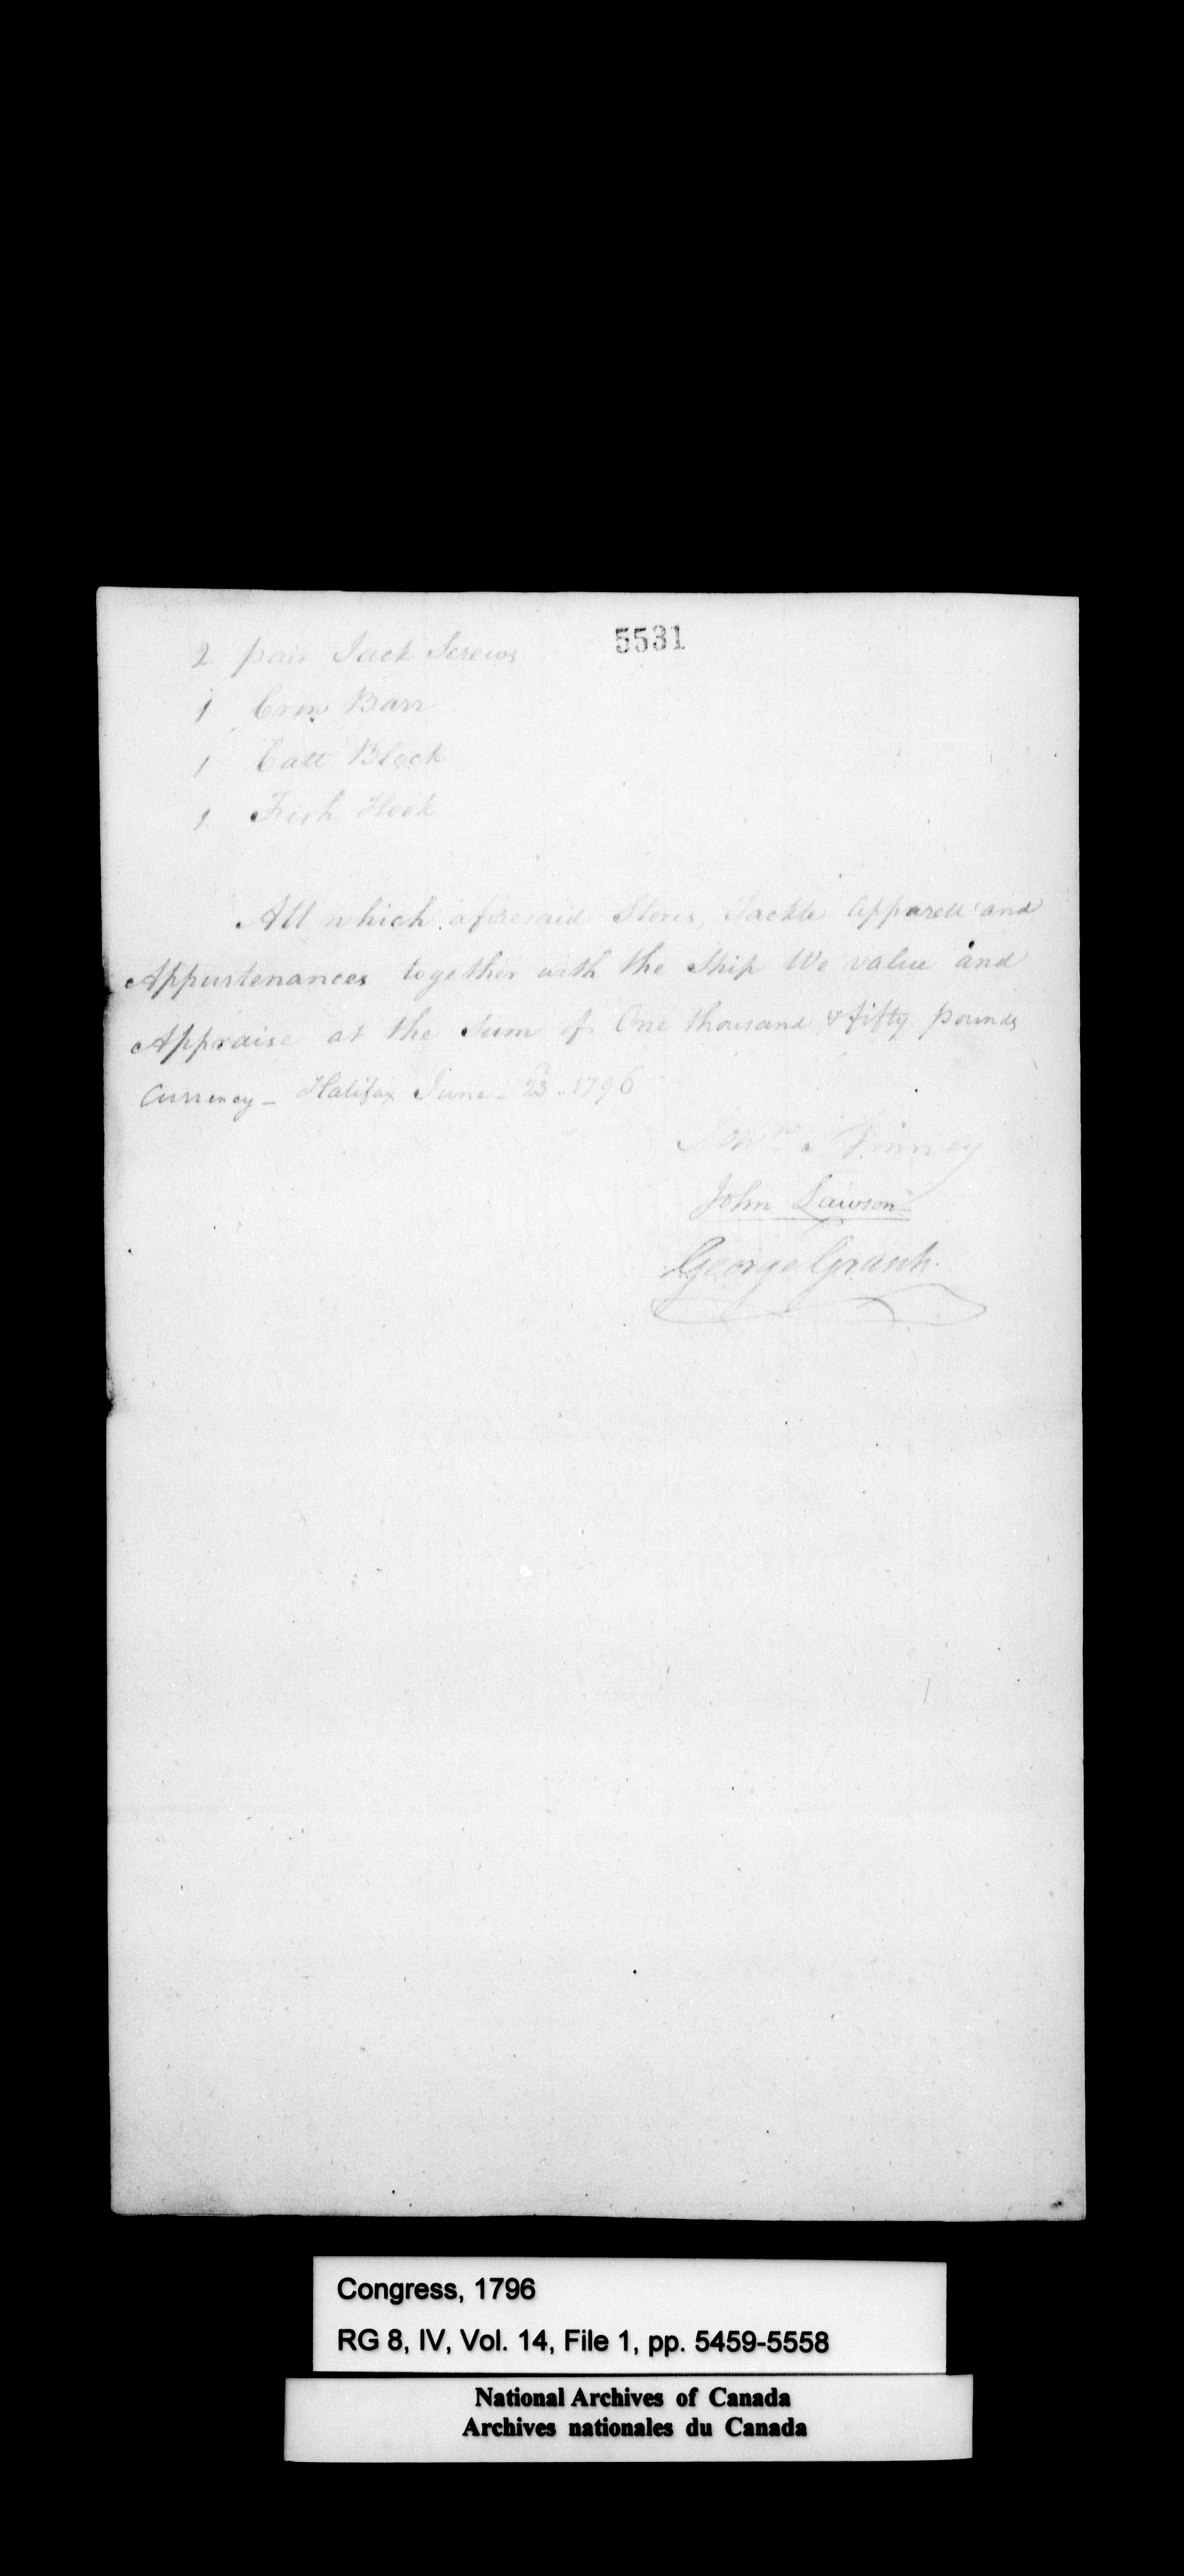 5531
2 pair Jack Screws
1 Crow Barr
1 Catt Block
1 Fish Hook
All which aforesaid Stores, Tackle Apparell and
Appurtenances together with the Ship We value and
Appraise at the Sum of One thousand & fifty pounds
Currency - Halifax June - 23 - 1796
Jon.n Tinney
John Lawson
George Grasch
Congress, 1796
RG 8, IV, Vol. 14, File 1, pp. 5459-5558
National Archives of Canada
Archives nationales du Canada